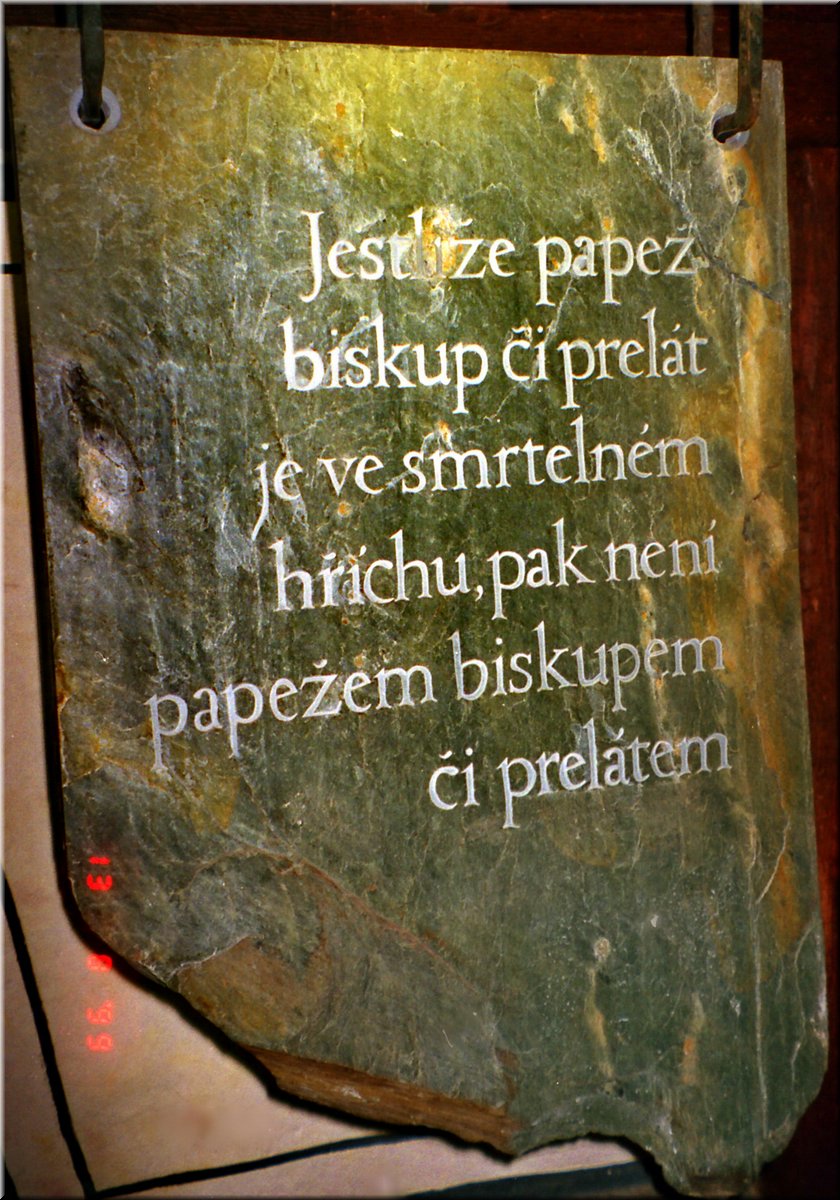 Jestliže papež
biskup či prelát
je ve smrtelném
hříchu, pak není
papežem biskupem
či prelátem